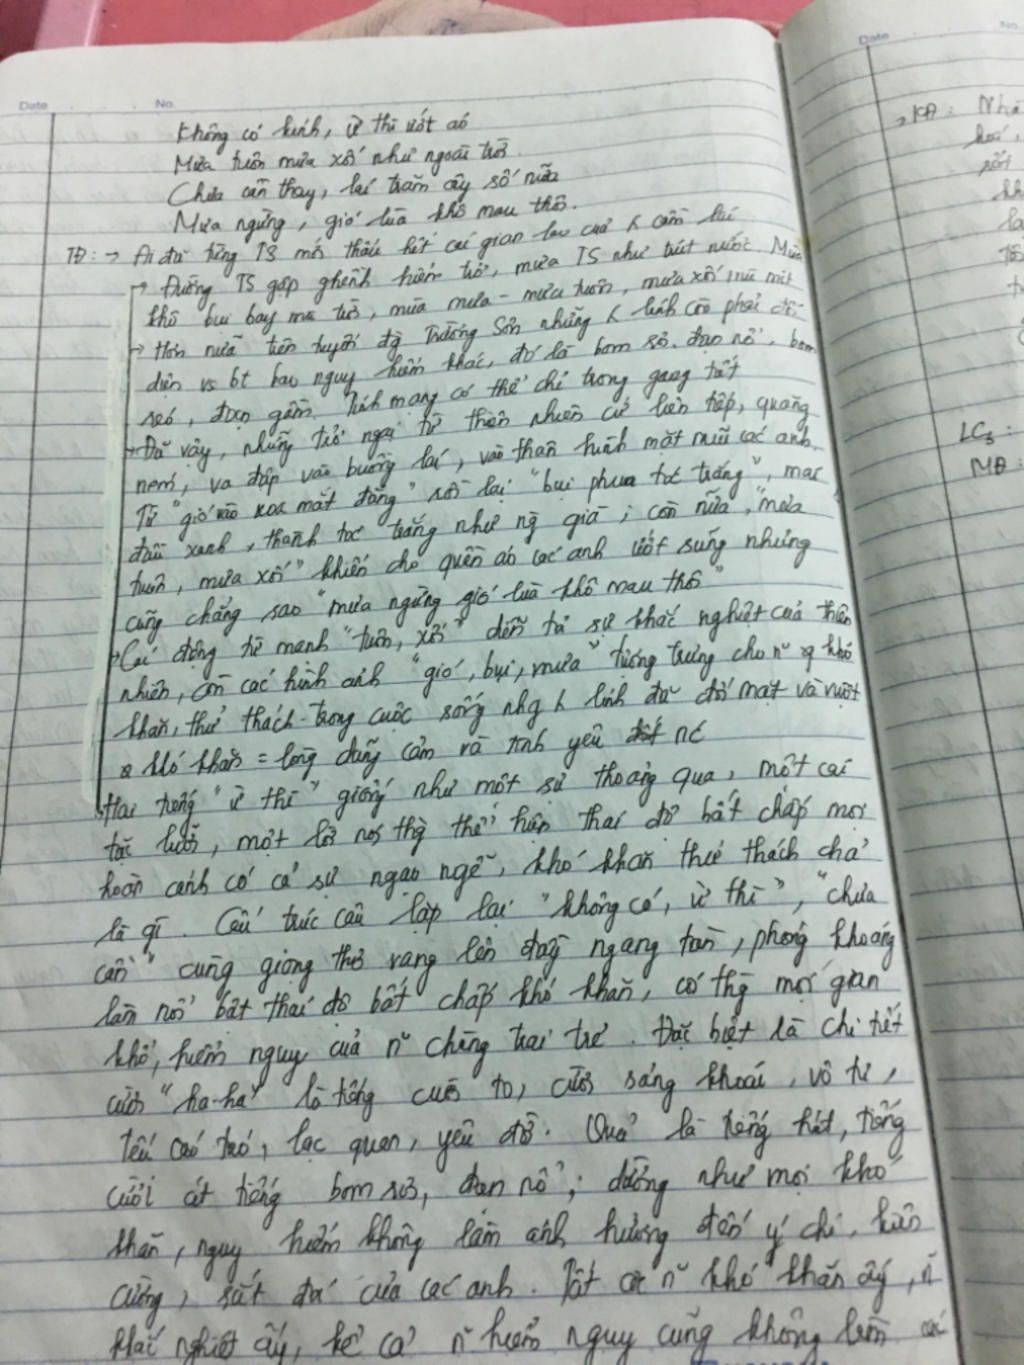 Date No.
Không có kính, ừ thì ướt áo
Mưa tuôn mưa xối như ngoài trời
Chưa cần thay, lái trăm cây số nữa
Mưa ngừng, gió lùa khô mau thôi.
TĐ: → Ai đã từng TS mới thấu hết cái gian lao của λ cầm lái
→ Đường TS gập ghềnh hiểm trở, mưa TS như trút nước. Mùa
khô bụi bay mù trời, mùa mưa - mưa tuôn, mưa xối mù mịt
→ Hơn nữa tiền tuyến đg Trường Sơn những λ lính còn phải đối
diện vs bt bao nguy hiểm khác, đó là bom rơi, đạn nổ, bom
reo, đạn gầm. Tính mạng có thể chỉ trong gang tất
→ Đã vậy, những trở ngại từ thiên nhiên cứ liên tiếp, quăng
ném, va đập vào buồng lái, vào thân hình mặt mũi các anh.
Từ "gió vào xoa mắt đắng" rồi lại "bụi phun tóc trắng", mái
đầu xanh, thành tóc trắng như ng già; còn nữa, "mưa
tuôn, mưa xối" khiến cho quần áo các anh ướt sũng nhưng
cũng chẳng sao "mưa ngừng gió lùa khô mau thôi"
→ Các động từ mạnh "tuôn, xối" diễn tả sự khắc nghiệt của thiên
nhiên, còn các hình ảnh "gió, bụi, mưa" tượng trưng cho n~ khó
khăn, thử thách trong cuộc sống nhg λ lính đã đối mặt và vượt
khó khăn = lòng dũng cảm và tình yêu nc
→ Hai tiếng "ừ thì" giống như một sự thoáng qua, một cái
tặc lưỡi, một lời nói thg thể hiện thái độ bất chấp mọi
hoàn cảnh có cả sự ngạo nghễ, khó khăn thử thách chả
là gì. Cấu trúc câu lặp lại "không có, ừ thì", "chưa
cần" cùng giọng thơ vang lên đầy ngang tàn, phóng khoáng
làm nổi bật thái độ bất chấp khó khăn, coi thg mọi gian
khổ, hiểm nguy của n~ chàng trai trẻ. Đặc biệt là chi tiết
cười "ha-ha" là tiếng cười to, cười sảng khoái, vô tư,
tếu táo, lạc quan, yêu đời. Quả là tiếng hát, tiếng
cười át tiếng bom rơi, đạn nổ; dường như mọi khó
khăn, nguy hiểm không làm ảnh hưởng đến ý chí, kiên
cường, sắt đá của các anh. Tất cả n~ khó khăn ấy, n~
khắc nghiệt ấy, kể cả n~ hiểm nguy cũng không làm
Date No.
→ KQ: Nhà
LC3:
MĐ: